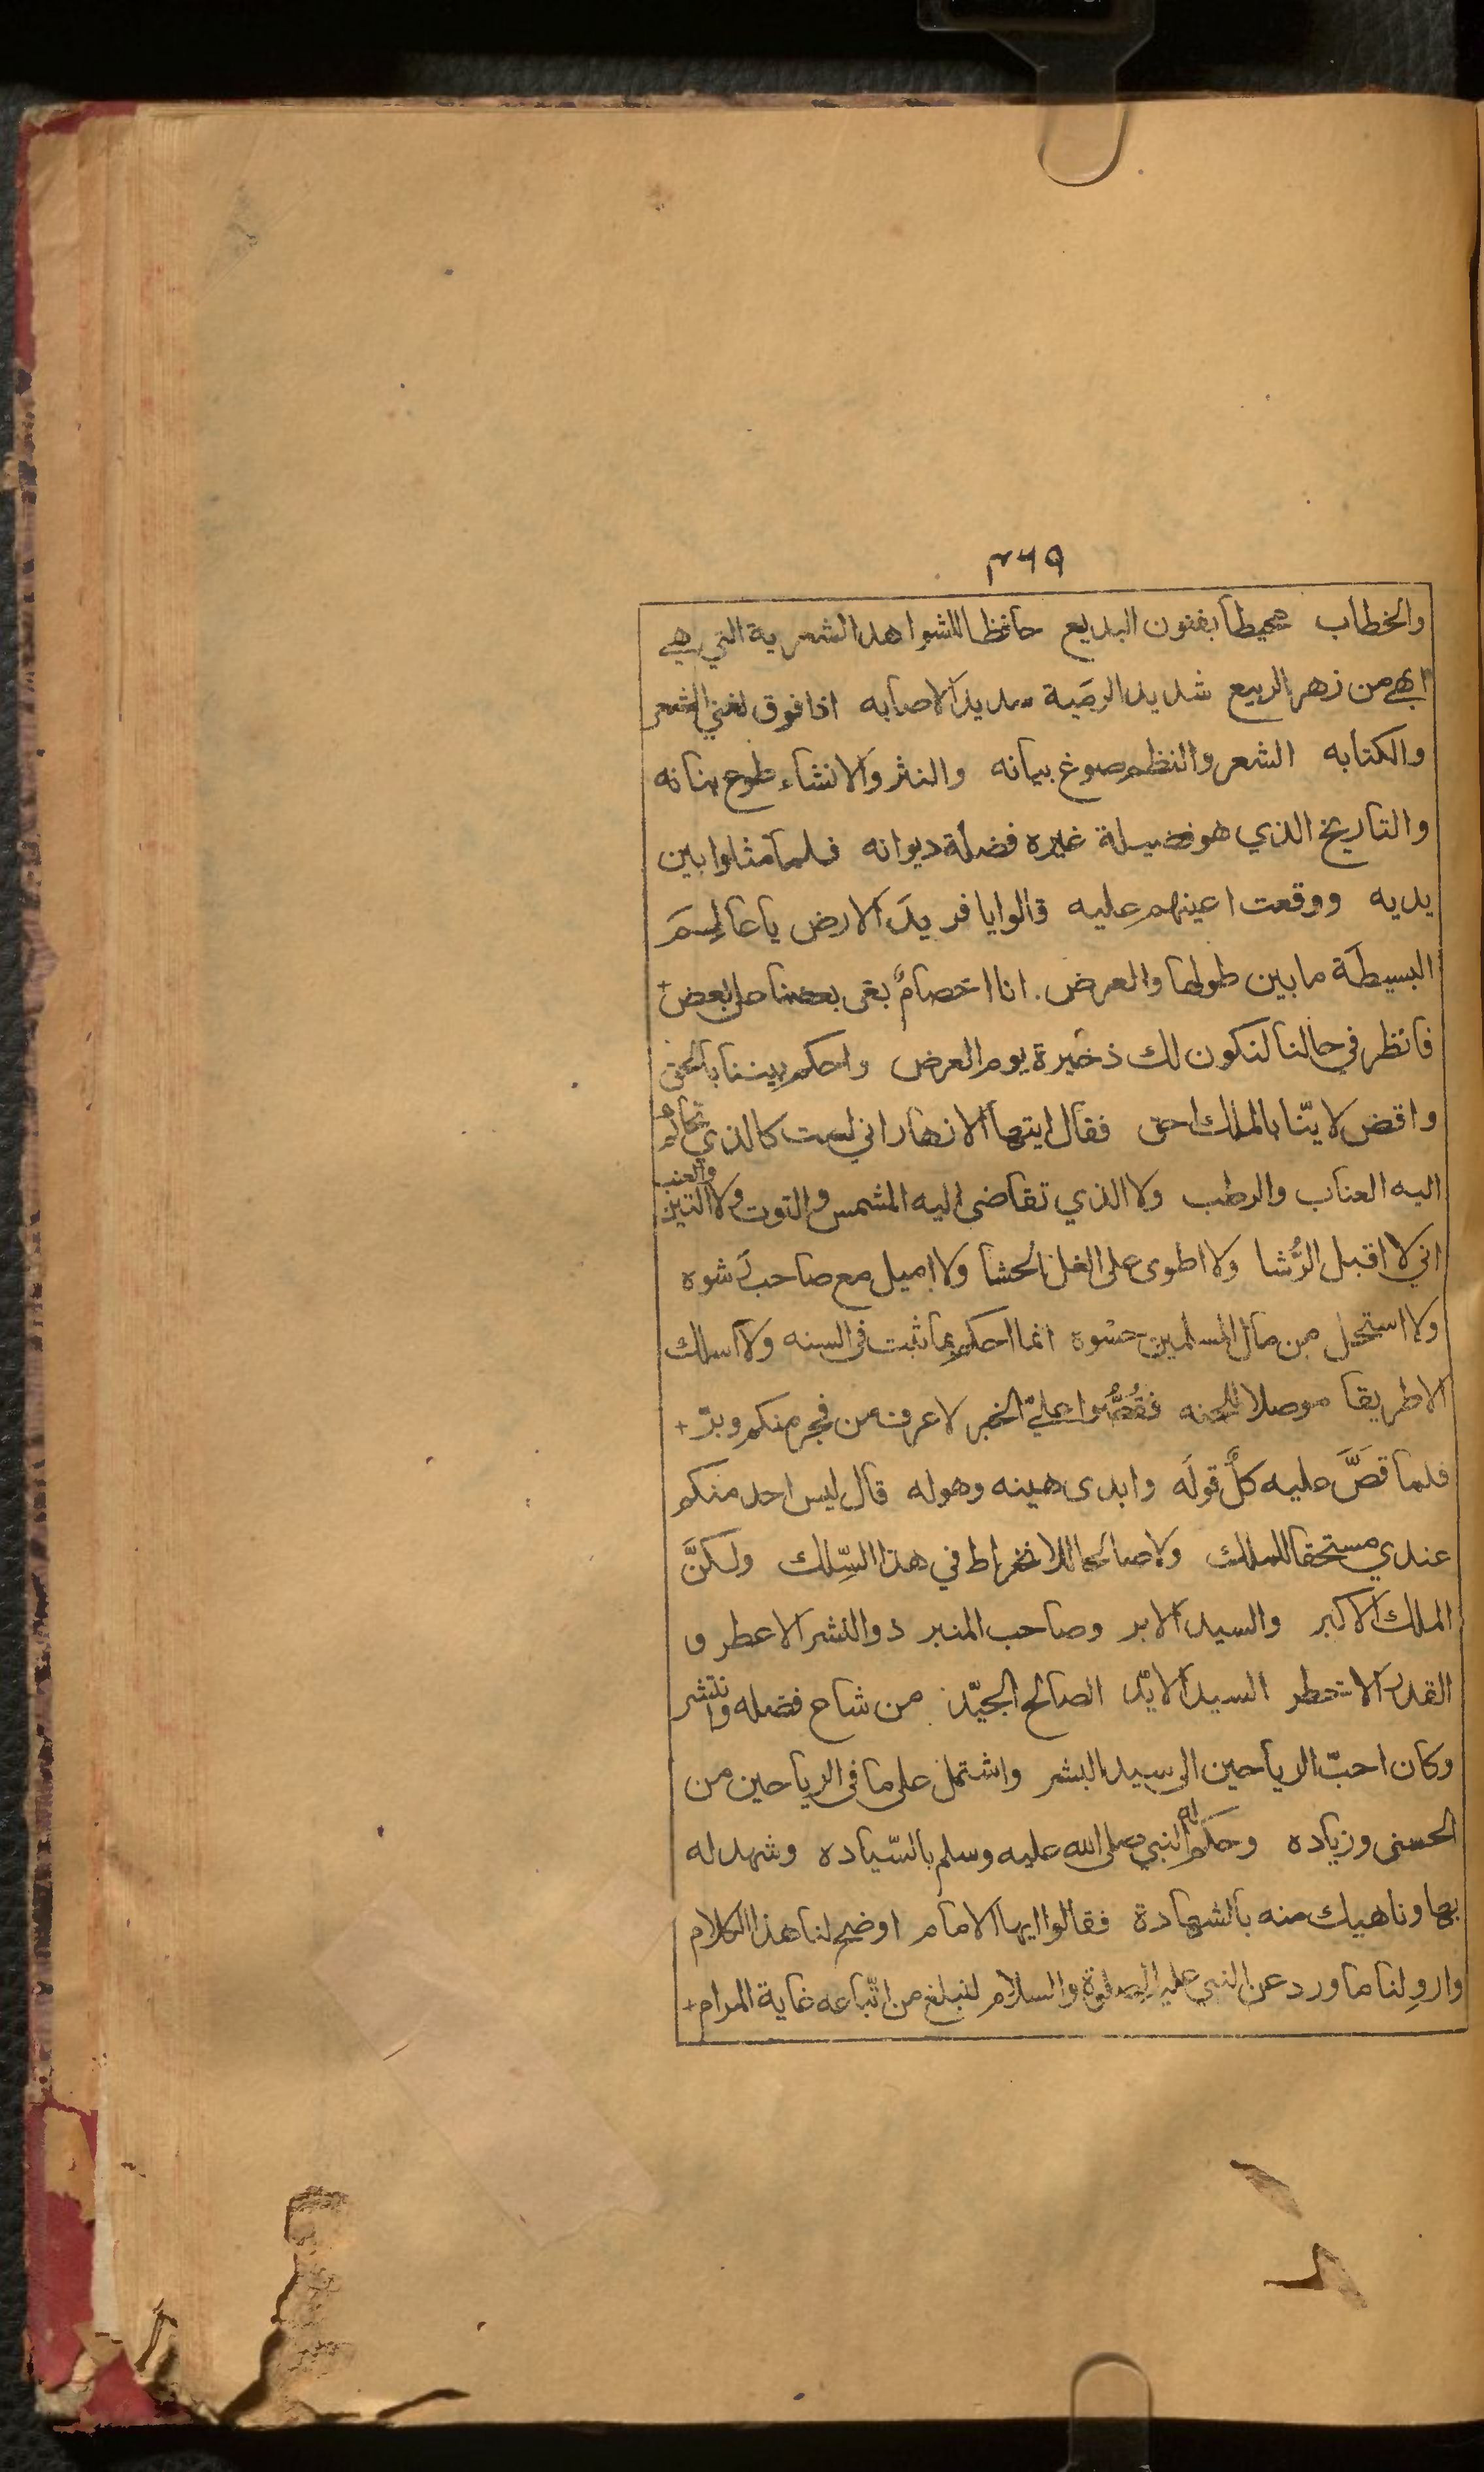 ٣٦٩
والخطاب محيطا بفنون البديع حافظا للشواهد الشعرية التي هي
ابهى من زهر الربيع شديد الرمية سديد الاصابه اذا فوق لغني الشعر
والكتابه الشعر والنظم صوغ بيانه والنثر والانشاء طوع بنانه
والتاريخ الذي هو فضيلة غيره فضلة ديوانه فلما مثلوا بين
يديه ووقعت اعينهم عليه قالوا يا فريد الارض يا عالم
البسيطة ما بين طولها والعرض . انا اخصام بغى بعضنا على بعض +
فانظر في حالنا لنكون لك ذخيرة يوم العرض واحكم بيننا بالحق
واقض لايّنا بالملك احق فقال ايتها الازهار اني لست كالذي تحاكم
اليه العناب والرطب ولا الذي تقاضى اليه المشمس والتوت ولا التين والعنب
اني لا اقبل الرُّشا ولا اطوى على الغل الحشا ولا اميل مع صاحب رشوه
ولا استحل من مال المسلمين حسوه انما احكم بما ثبت في السنه ولا اسلك
الا طريقا موصلا للجنه فقُصُّوا عليّ الخبر لاعرف من فجر منكم وبرّ +
فلما قصَّ عليه كلٌ قوله وابدى هينه وهوله قال ليس احد منكم
عندي مستحقا للملك ولا صالحا للانخراط في هذا السِّلك ولكنَّ
الملك الاكبر والسيد الابر وصاحب المنبر ذو النشر الاعطر و
القدر الاخطر السيد الايّد الصالح الجيّد من شاع فضله وانتشر
وكان احبّ الرياحين الى سيد البشر واشتمل على ما في الرياحين من
الحسنى وزياده وحكم له النبي صلى الله عليه وسلم بالسّياده وشهد له
بها وناهيك منه بالشهادة فقالوا ايها الامام اوضح لنا هذا الكلام
واروِ لنا ما ورد عن النبي عليه الصلوة والسلام لنبلغ من اتّباعه غاية المرام +